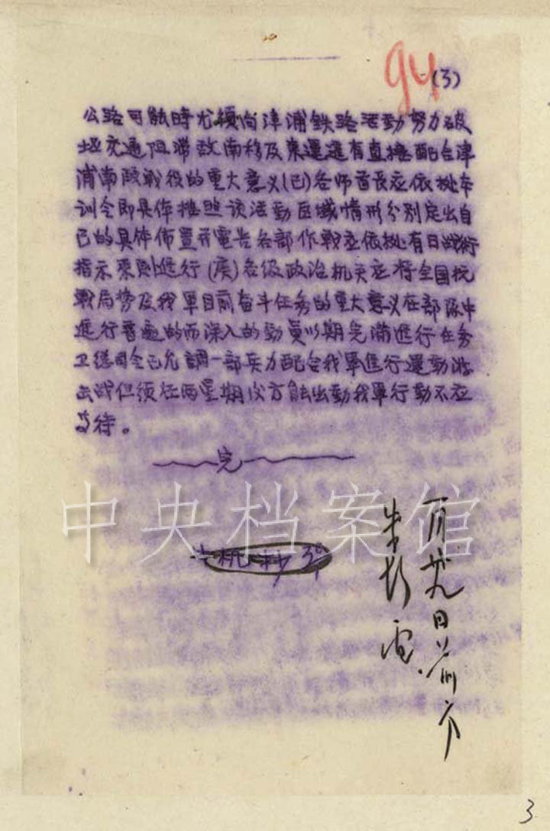 94 (3)
公路可能時尤須向津浦鉄路活動努力破
坏交通阻滞敌南移及東運還有直接配合津
浦南段戰役的重大意义(已)各师首長应依拠本
训令即具体推照该活動区域情形分别定出自
己的具体佈置并電告各部作戰应依拠有日战行
指示原則進行(庚)各级政治机关应将全国抗
戰局势及我軍目前奋斗任务的重大意义在部隊中
進行普遍的而深入的動員以期完满進行任务
卫总司令已允調一部兵力配合我軍進行運動游
击战但须在两星期以方能出動我軍行動不应
等待。
完
中央档案馆
日
朱彭電
3